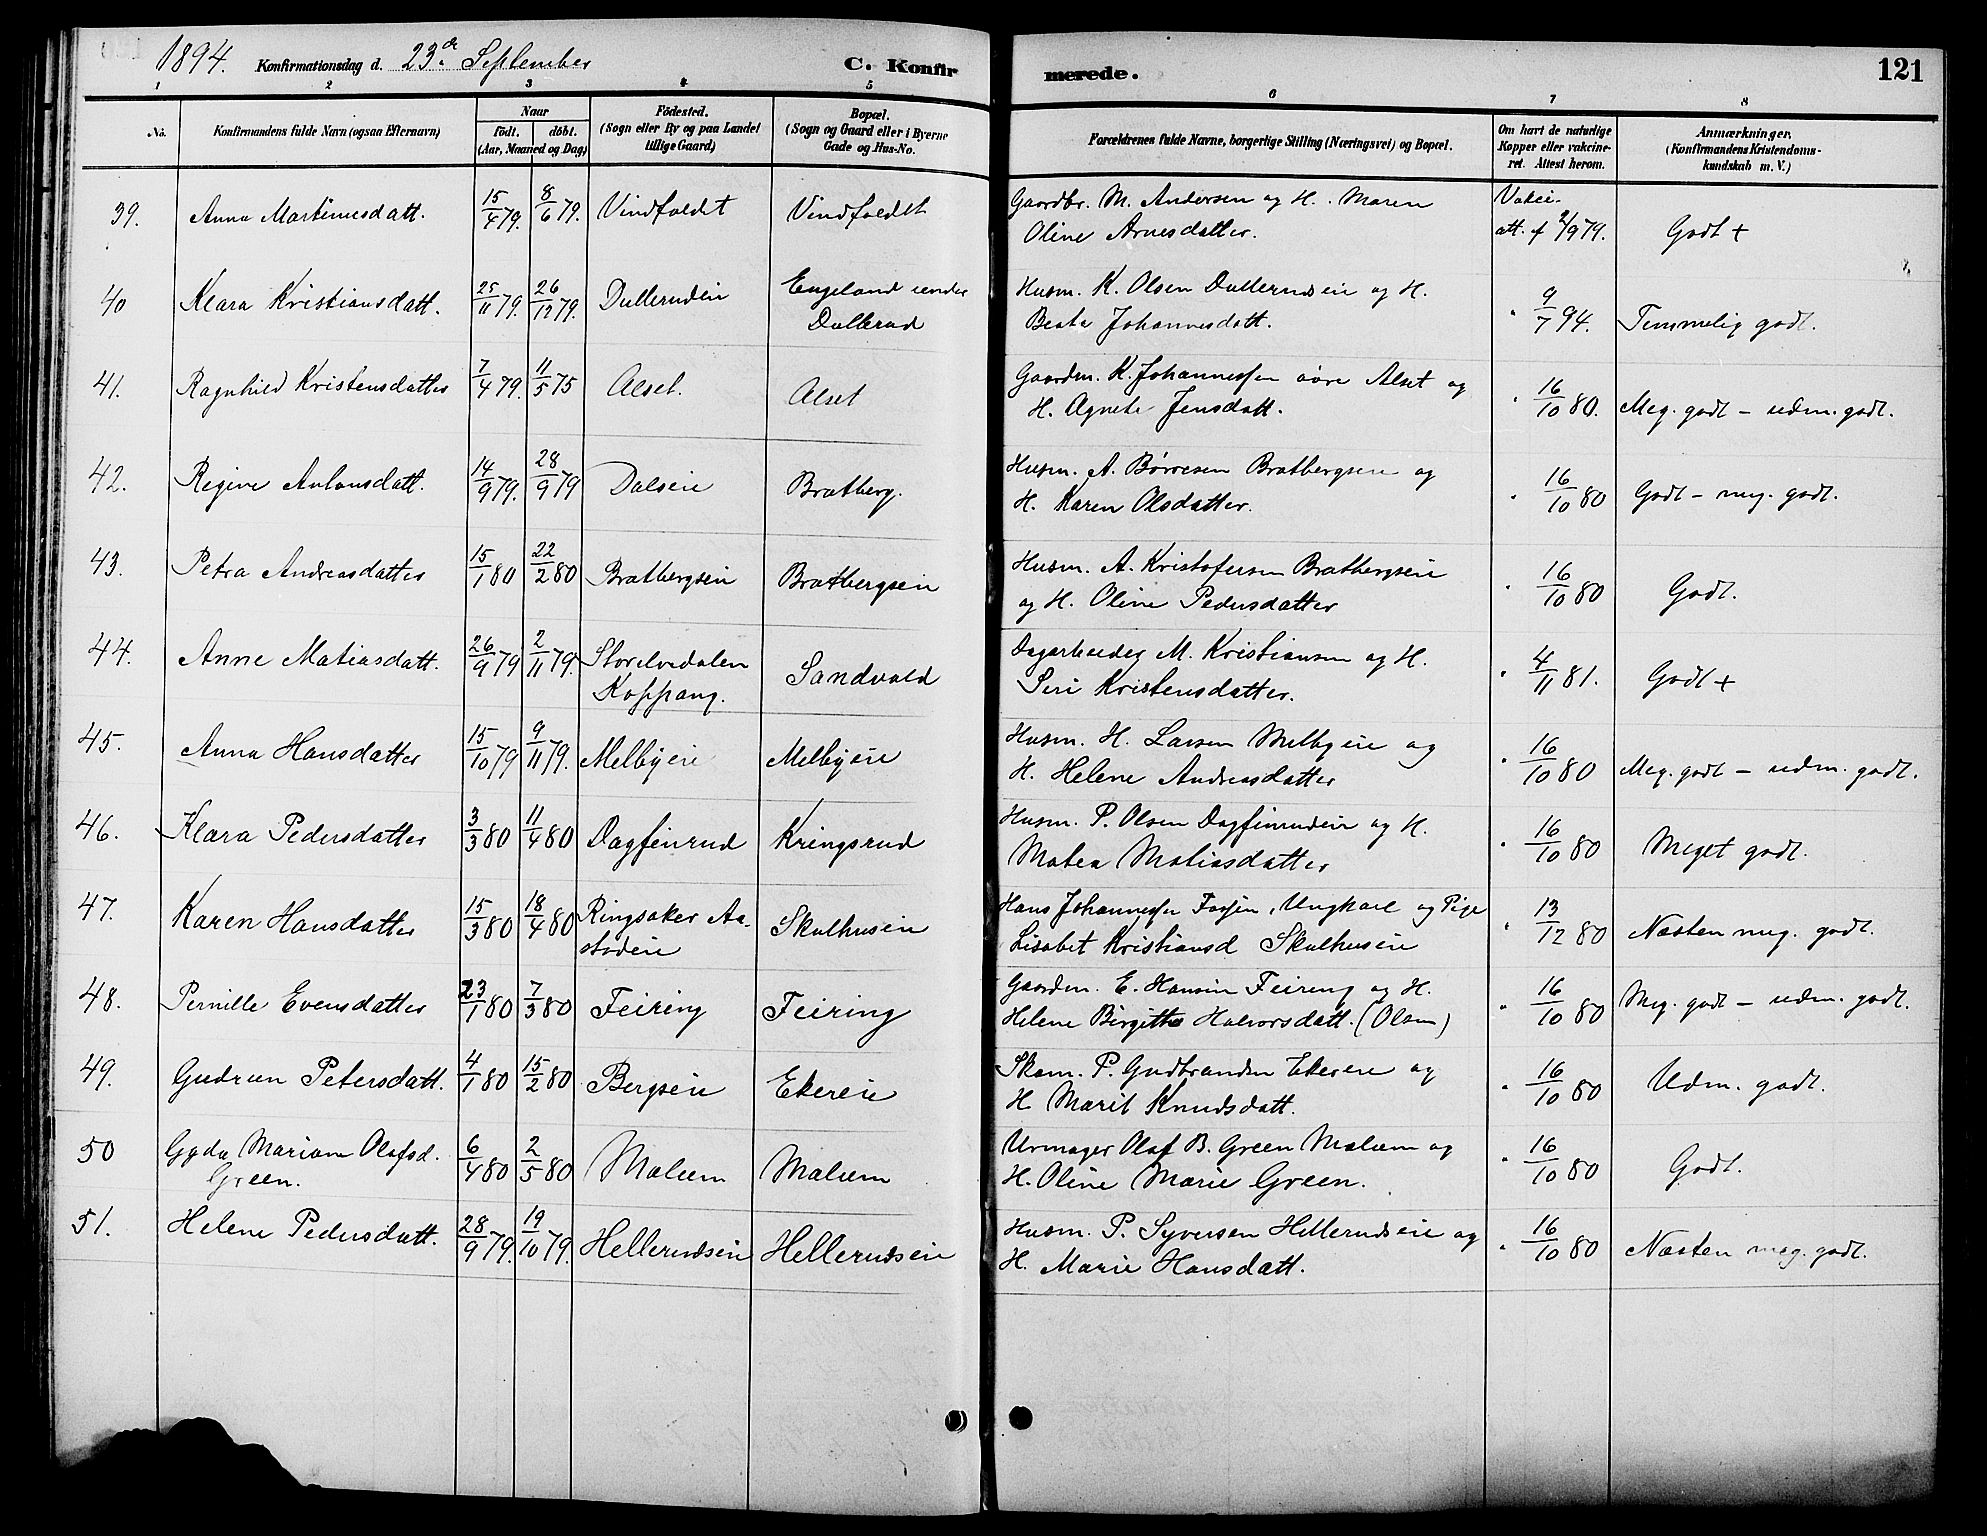 1894. Konfirmationsdag d. 23de September C. Konfirmerede. 121
1 2 3 4 5 6 7 8
No. Konfirmandens fulde Navn (ogsaa Efternavn) Naar født. døbt. (Aar, Maaned og Dag) Fødested. (Sogn eller By og paa Landet tillige Gaard) Bopæl. (Sogn og Gaard eller i Byerne Gade og Hus-No. Forældrenes fulde Navne, borgerlige Stilling (Næringsvei) og Bopæl. Om havt de naturlige Kopper eller vakcineret. Attest herom. Anmærkninger. (Konfirmandens Kristendomskundskab m. V.)
39. Anna Martinusdatt. 15/4 79. 8/6 79. Vindfaldet Vindfaldet Gaardbr. M. Andersen og H. Maren Vakci-
Oline Arnesdatter. att. f 2/9 79. Godt +
40 Klara Kristiansdatt. 25/11 79. 26/12 79. Dullerudeie Engeland under Husm. K. Olsen Dullerudseie og H.
Dullerud Beate Johannesdatt. " 9/7 94. Temmelig godt.
41. Ragnhild Kristensdatter 7/4 79. 11/5 75 Alset. Alset Gaardm. K. Johannessen øvre Alset og
H. Agnete Jensdatt. " 16/10 80. Meg. godt – udm. godt.
42. Regine Antonsdatt. 14/9 79. 28/9 79 Dalseie Bratberg. Husm. A. Børresen Bratbergseie og
H. Karen Olsdatter. " 16/10 80 Godt – meg. godt.
43. Petra Andreasdatter 15/1 80 22/2 80 Bratbergseie Bratbergseie Husm. A. Kristofersen Bratbergseie
og H. Oline Pedersdatter " 16/10 80 Godt.
44. Anne Matiasdatt. 26/9 79 2/11 79. Storelvedalen Sandvold Dagarbeider M. Kristiansen og H.
Koppang. Siri Kristensdatter. " 4/11 81. Godt +
45. Anna Hansdatter 15/10 79 9/11 79. Melbyeie Melbyeie Husm. H. Larsen Melbyeie og
H. Helene Andreasdatter " 16/10 80 Meg. godt – udm. godt.
46. Klara Pedersdatter 3/3 80 11/4 80 Dagfinrud Kringsrud Husm. P. Olsen Dagfinrudeie og H.
Matea Matiasdatter " 16/10 80 Meget godt.
47. Karen Hansdatter 15/3 80 18/4 80 Ringsaker Aa- Skulhuseie Hans Johannessen Ungkarl og Pige
stadeie Lisabet Kristiansd Skulhuseie " 13/12 80 Næsten meg. godt.
48. Pernille Evensdatter 23/1 80 7/3 80 Feiring Feiring Gaardm. E. Hansen Feiring og H.
Helene Birgitte Halvorsdatt. (Olsen) " 16/10 80 Meg. godt – udm. godt.
49. Gudrun Petersdatt. 4/1 80 15/2 80 Bergseie Ekereie Skom. P. Gudbrandsen Ekereie og
H Marit Knudsdatt. " 16/10 80 Udm. godt.
50 Gyda Mariam Olafsd. 6/4 80 2/5 80 Malum Malum Urmager Olaf B. Green Malum og
Green. H. Oline Marie Green. " 16/10 80 Godt.
51. Helene Pedersdatt. 28/9 79. 19/10 79. Hellerudseie Hellerudseie Husm. P. Syversen Hellerudseie og
H. Marie Hansdatt. " 16/10 80 Næsten meg. godt.